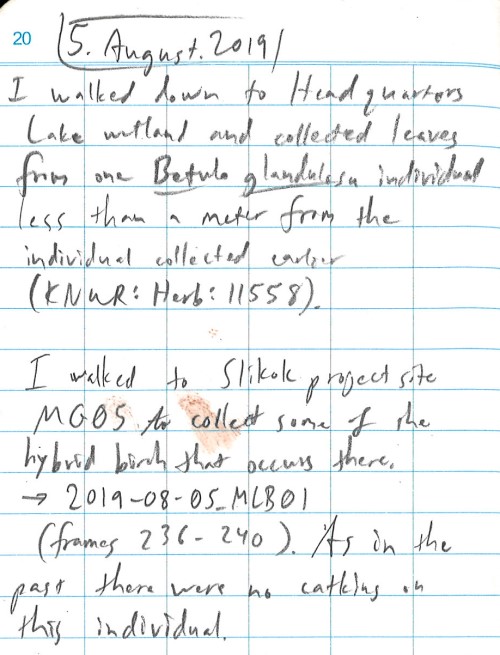 20
5. August. 2019
I walked down to Headquarters
Lake wetland and collected leaves
from one Betula glandulosa individual
less than a meter from the
individual collected earlier
(KNWR:Herb:11558).
I walked to Slikok project site
MG05 to collect some of the
hybrid birch that occurs there.
→ 2019-08-05_MLB01
(frames 236-240). As in the
past there were no catkins on
this individual.